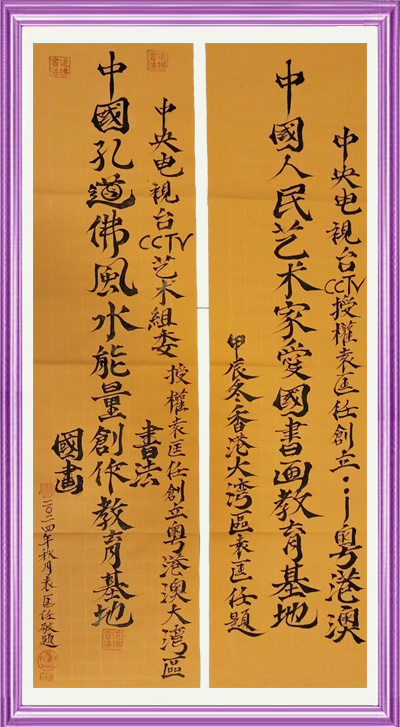 中央电視台CCTV授權袁匡任創立粤港澳
中國人民艺术家愛國書画教育基地
甲辰冬香港大湾區袁匡任題
中央电視台CCTV艺术組委授權袁匡任創立粤港澳大湾區
書法
中國孔道佛風水能量創作教育基地
國畫
二〇二四年秋月袁匡任敬題